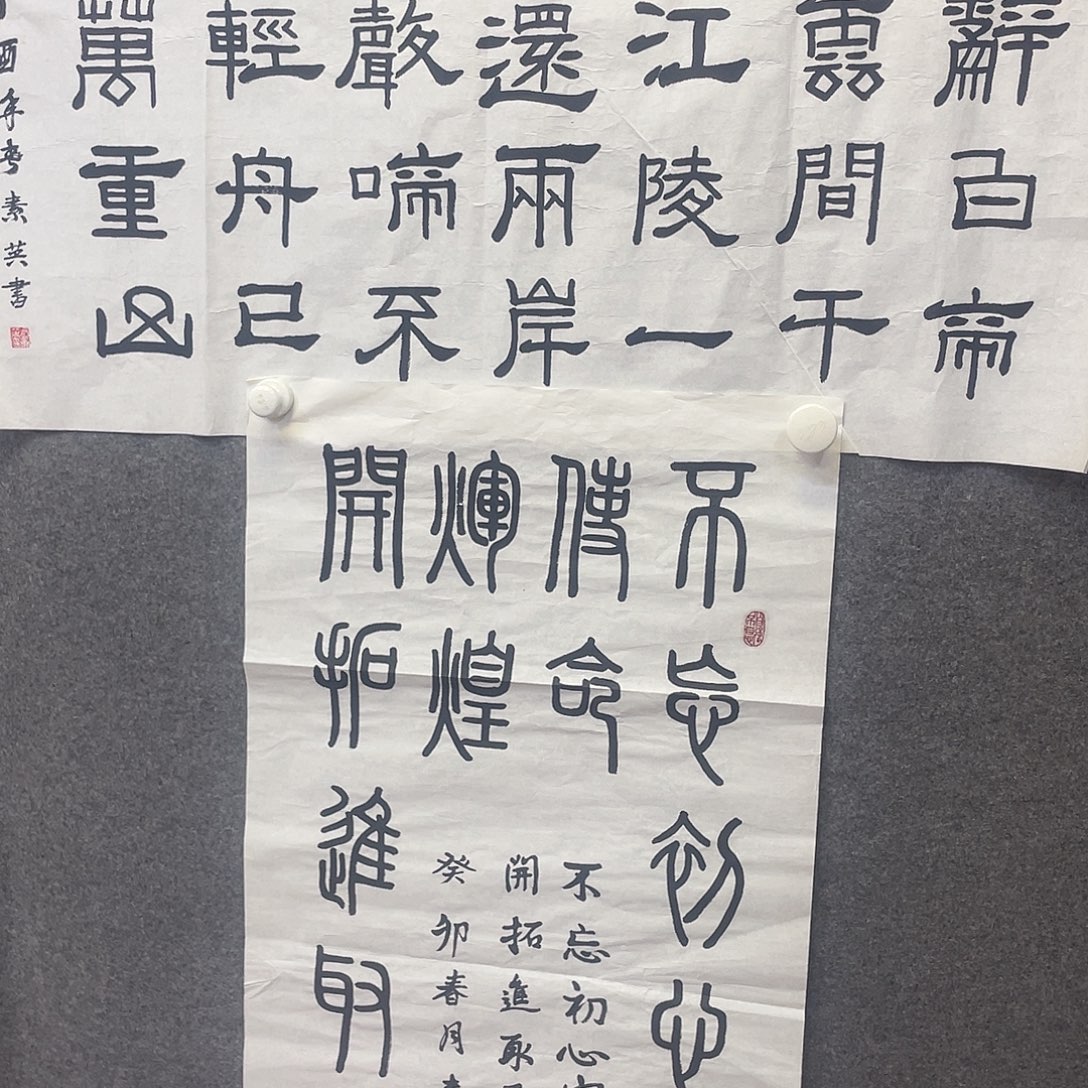 辭白帝
雲間千
江陵一
還兩岸
聲啼不
輕舟已
萬重山
酉年春素英書
不忘初心
使命
輝煌
開拓進取
不忘初心
開拓進取
癸卯春月